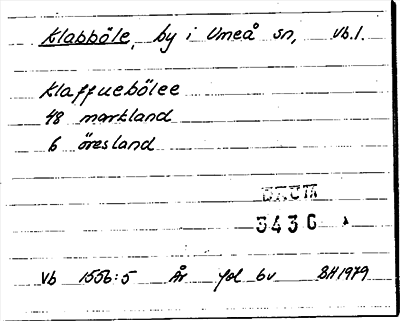 Klabböle, by i Umeå sn, Vb.l.
Klaffuebölee
48 markland
6 öresland
DAUM
3436
Vb 1556:5 År jol bv BH1979